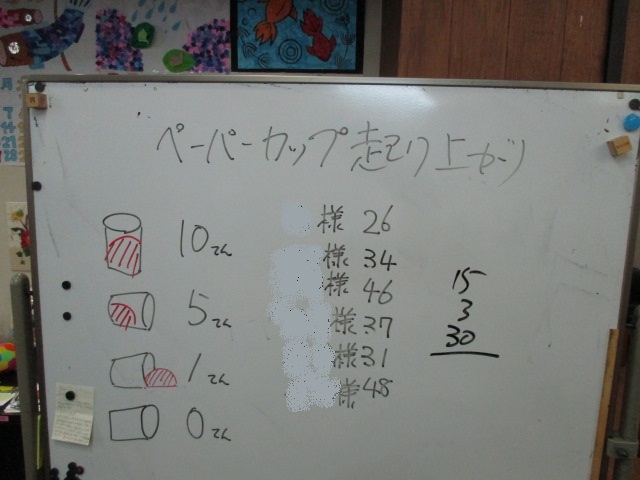 ペーパーカップ起り上がり
10てん
5てん
1てん
0てん
様 26
様 34
様 46
様 37
様 31
様 48
15
3
30